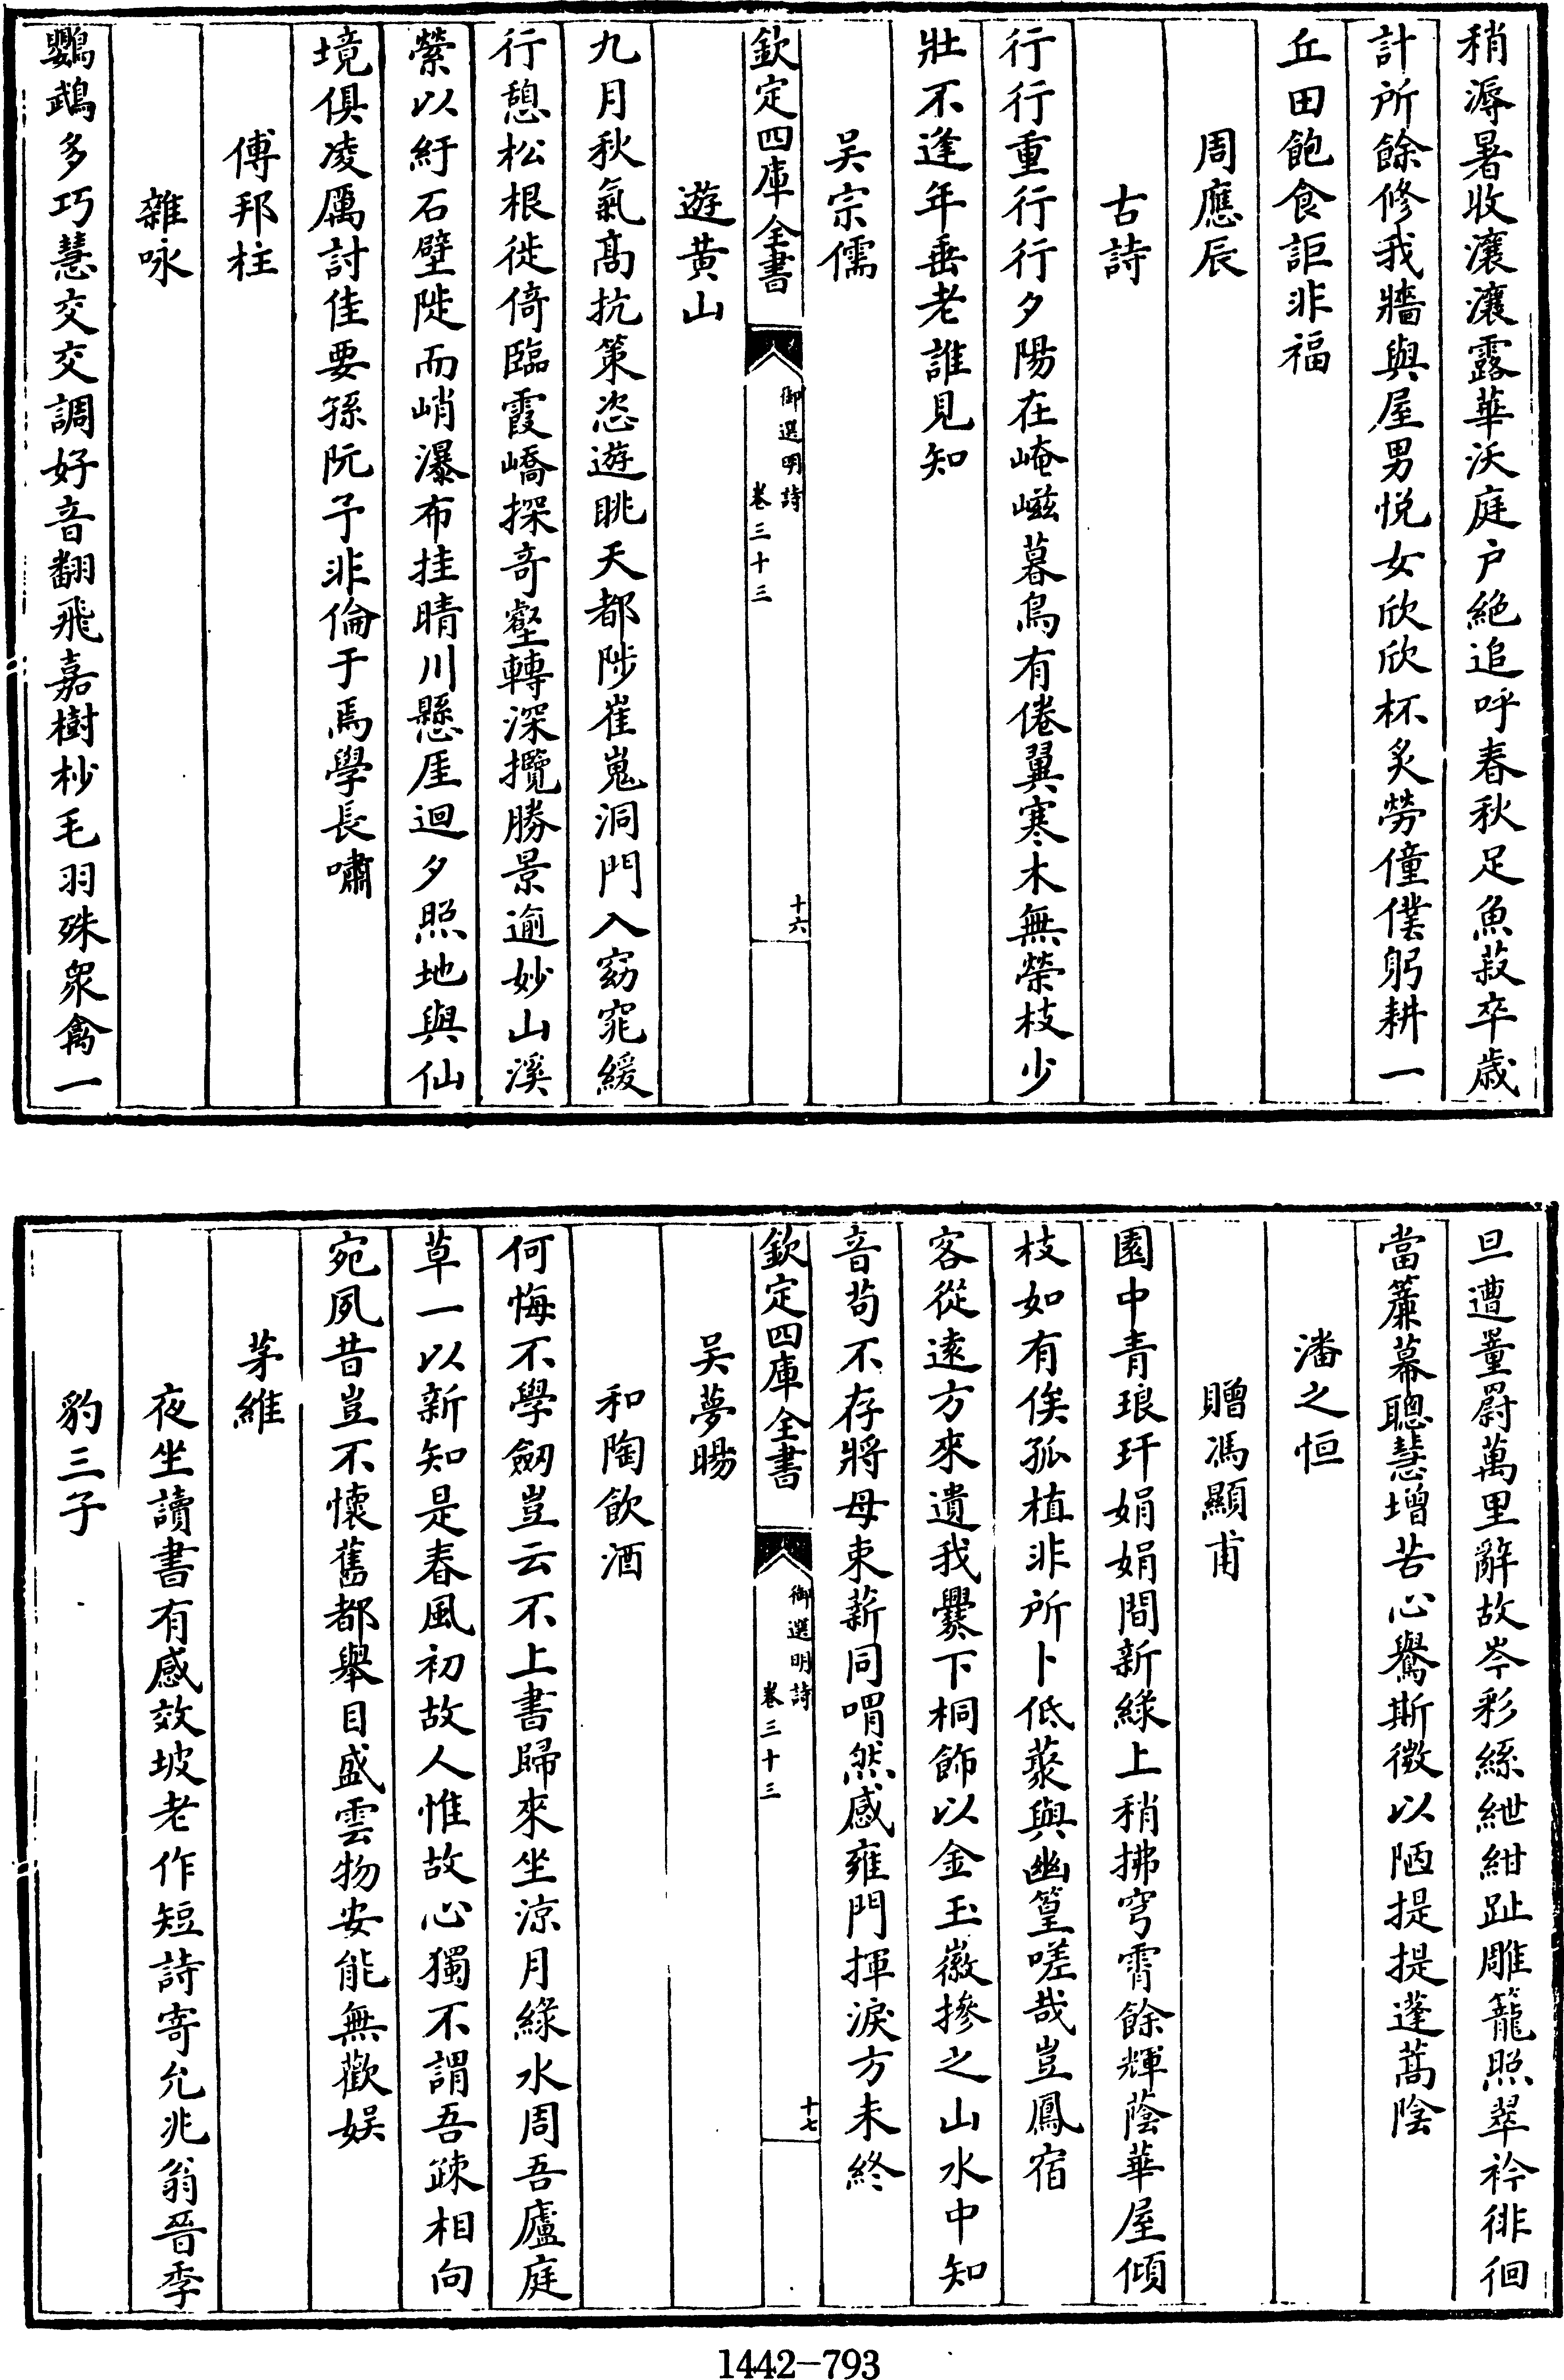 稍溽暑收瀼瀼露華沃庭户絶追呼春秋足魚菽卒歳
計所餘修我牆與屋男悦女欣欣杯炙勞僮僕躬耕一
丘田飽食詎非福
周應辰
古詩
行行重行行夕陽在崦嵫暮鳥有倦翼寒木無榮枝少
壯不逢年垂老誰見知
吴宗儒
欽定四庫全書
御選明詩
卷三十三
十六
遊黄山
九月秋氣髙抗策恣遊眺天都陟崔嵬洞門入窈窕緩
行憩松根徙倚臨霞嶠探奇壑轉深攬勝景逾妙山溪
縈以紆石壁陡而峭瀑布挂晴川懸厓迴夕照地與仙
境俱凌厲討佳要孫阮予非倫于焉學長嘯
傅邦柱
雜咏
鸚鵡多巧慧交交調好音翻飛嘉樹杪毛羽殊衆禽一
旦遭罿罻萬里辭故岑彩絲紲紺趾雕籠照翠衿徘徊
當簾幕聰慧增苦心鸒斯微以陋提提蓬蒿陰
潘之恒
贈馮顯甫
園中青琅玕娟娟間新緑上稍拂穹霄餘輝蔭華屋傾
枝如有俟孤植非所卜低藂與幽篁嗟哉豈鳳宿
客從逺方來遺我爨下桐飾以金玉徽摻之山水中知
音苟不存將母束薪同喟然感雍門揮淚方未終
欽定四庫全書
御選明詩
卷三十三
十七
吴夢暘
和陶飲酒
何悔不學劒豈云不上書歸來坐涼月緑水周吾廬庭
草一以新知是春風初故人惟故心獨不謂吾疎相向
宛夙昔豈不懷舊都舉目盛雲物安能無歡娱
茅維
夜坐讀書有感效坡老作短詩寄允兆翁晉季
豹三子
1442-793